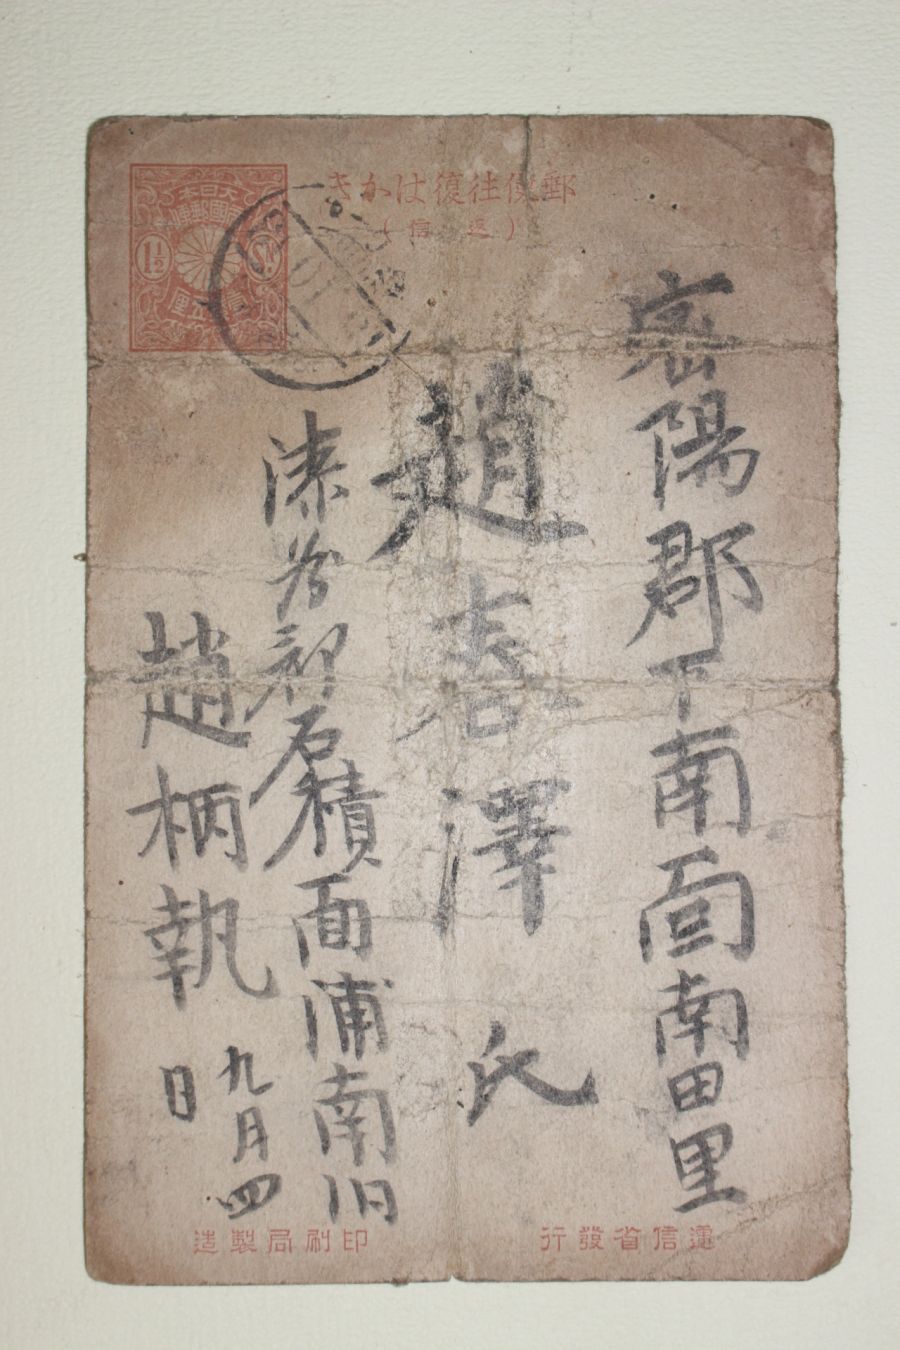 郵便往復はかき
(返信)
大日本
帝國郵便
1½ Sn.
壹錢五厘
密陽郡下南面南田里
趙喜澤 氏
漆谷郡石積面浦南旧
趙柄執
九月四
日
逓信省發行
印刷局製造